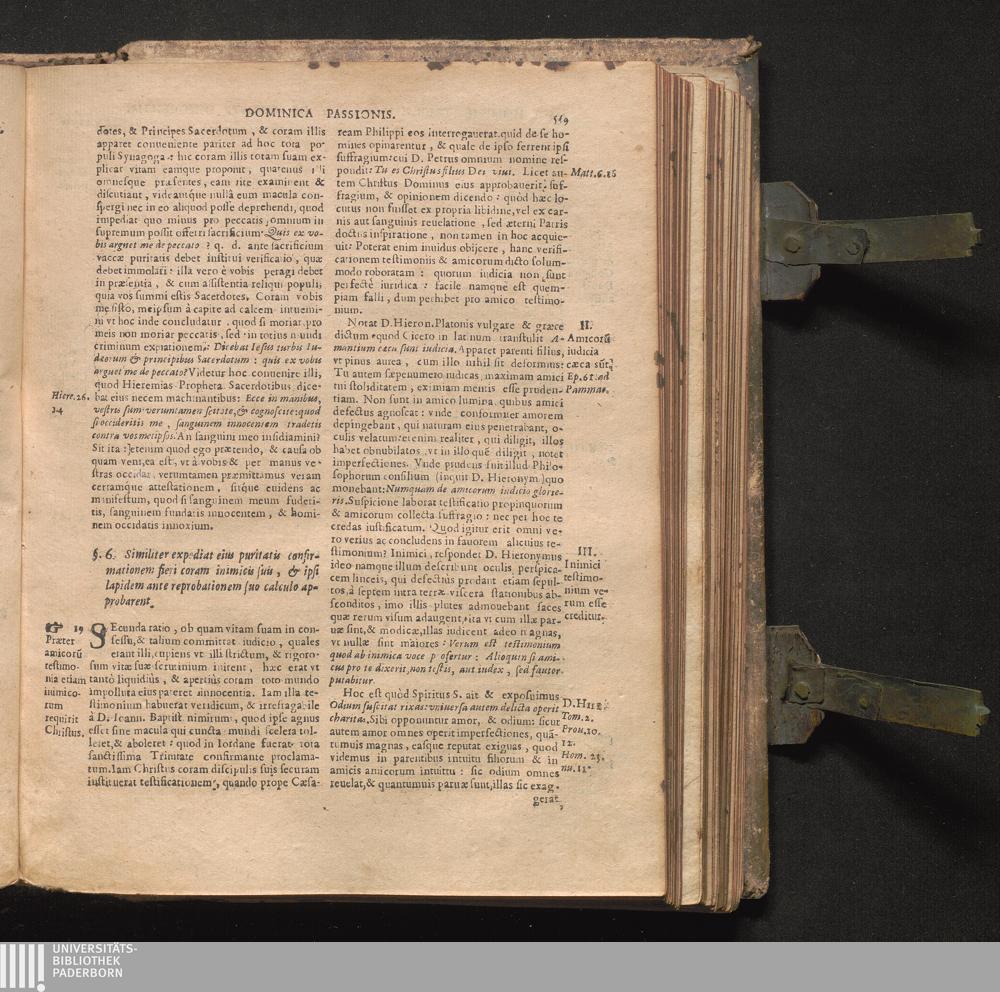 DOMINICA PASSIONIS.
519
dotes, & Principes Sacerdotum, & coram illis
apparet conueniente pariter ad hoc tota po-
puli Synagoga: hic coram illis totam suam ex-
plicat vitam eamque proponit, quatenus illi
omnesque præsentes, eam rite examinent &
discutiant, videantque nullâ eum macula con-
spergi nec in eo aliquod posse deprehendi, quod
impediat quo minus pro peccatis omnium in
supremum possit offerri sacrificium. Quis ex vo-
bis arguet me de peccato? q. d. ante sacrificium
vaccæ puritatis debet institui verificatio, quæ
debet immolari: illa vero è vobis peragi debet
in præsentia, & cum assistentia reliqui populi,
quia vos summi estis Sacerdotes. Coram vobis
me sisto, meipsum à capite ad calcem intuemi-
ni vt hoc inde concludatur, quod si moriar, pro
meis non moriar peccatis, sed in totius mundi
criminum expiationem: Dicebat Iesus turbis Iu-
dæorum & principibus Sacerdotum: quis ex vobis
arguet me de peccato? Videtur hoc conuenire illi,
quod Hieremias Propheta Sacerdotibus dice-
bat eius necem machinantibus: Ecce in manibus,
vestris sum veruntamen scitote, & cognoscite: quod
si occideritis me, sanguinem innocentem tradetis
contra vosmetipsos. An sanguini meo insidiamini?
Sit ita: etenim quod ego prætendo, & causa ob
quam veni, ea est, vt à vobis & per manus ve-
stras occidar, verumtamen præmittamus veram
certamque attestationem, sitque euidens ac
manifestum, quod si sanguinem meum fuderi-
tis, sanguinem fundatis innocentem, & homi-
nem occidatis innoxium.
Hiere. 26.
14
§. 6. Similiter expediat eius puritatis confir-
mationem fieri coram inimicis suis, & ipsi
lapidem ante reprobationem suo calculo ap-
probarent.
19
Præter
amicorū
testimo-
nia etiam
inimico-
rum
requirit
Christus.
SEcunda ratio, ob quam vitam suam in con-
sessu, & talium committat iudicio, quales
erant illi, cupiens vt illi strictum, & rigoro-
sum vitæ suæ scrutinium inirent, hæc erat vt
tantò liquidiùs, & apertiùs coram toto mundo
impolluta eius pateret innocentia. Iam illa te-
stimonium habuerat veridicum, & irrefragabile
à D. Ioann. Baptist. nimirum, quod ipse agnus
esset sine macula qui cuncta mundi scelera tol-
leret, & aboleret: quod in Iordane fuerat tota
sanctissima Trinitate confirmante proclama-
tum. Iam Christus coram discipulis suis securam
instituerat testificationem, quando prope Cæsa-
ream Philippi eos interrogauerat quid de se ho-
mines opinarentur, & quale de ipso ferrent ipsi
suffragium: cui D. Petrus omnium nomine res-
pondit: Tu es Christus filius Dei viui. Licet au-
tem Christus Dominus eius approbauerit suf-
fragium, & opinionem dicendo: quòd hæc lo-
cutus non fuisset ex propria libidine, vel ex car-
nis aut sanguinis reuelatione, sed æterni Patris
doctus inspiratione, non tamen in hoc acquie-
uit: Poterat enim inuidus obijcere, hanc verifi-
cationem testimoniis & amicorum dicto solum-
modo roboratam: quorum iudicia non sunt
perfectè iuridica: facile namque est quem-
piam falli, dum perhibet pro amico testimo-
nium.
Notat D. Hieron. Platonis vulgare & græce
dictum quod Cicero in latinum transtulit A-
mantium cæca sunt iudicia. Apparet parenti filius,
vt pinus aurea, cum illo nihil sit deformius:
Tu autem sæpenumero iudicas maximam amici
tui stoliditatem, eximiam mentis esse pruden-
tiam. Non sunt in amico lumina quibus amici
defectus agnoscat: vnde conformiter amorem
depingebant, qui naturam eius penetrabant, o-
culis velatum: etenim realiter, qui diligit, illos
habet obnubilatos, vt in illo què diligit, notet
imperfectiones. Vnde prudens fuit illud Philo-
sophorum consilium (inquit D. Hieronym.) quo
monebant: Numquam de amicorum iudicio glorie-
ris. Suspicione laborat testificatio propinquorum
& amicorum collecta suffragio: nec per hoc te
credas iustificatum. Quod igitur erit omni ve-
ro verius ac concludens in fauorem alicuius te-
stimonium? Inimici, respondet D. Hieronymus
ideo namque illum describunt oculis perspica-
cem linceis, qui defectus prodant etiam sepul-
tos, à septem intra terræ viscera stationibus ab-
sconditos, imo illis plures admouebant faces
quæ rerum visum adaugent, ita vt cum illæ par-
uæ sint, & modicæ, illas iudicent adeo magnas,
vt nullæ sint maiores: Verum est testimonium
quod ab inimica voce profertur: Alioquin si ami-
cus pro te dixerit, non testis, aut iudex, sed fautor
putabitur.
Hoc est quòd Spiritus S. ait & exposuimus
Odium suscitat rixas: vniuersa autem delicta operit
charitas. Sibi opponuntur amor, & odium: sicut
autem amor omnes operit imperfectiones, quā-
tumuis magnas, easque reputat exiguas, quod
videmus in parentibus intuitu filiorum & in
amicis amicorum intuitu: sic odium omnes
reuelat, & quantumuis paruæ sunt, illas sic exag-
gerat,
Matt. 6. 16
II.
Amicorū
iudicia
cæca sūt
Ep. 61. ad
Pammac.
III.
Inimici
testimo-
nium ve-
rum esse
creditur.
D. HIER.
Tom. 2.
Prou. 10.
12.
Hom. 25.
nu. 12
UNIVERSITÄTS-
BIBLIOTHEK
PADERBORN